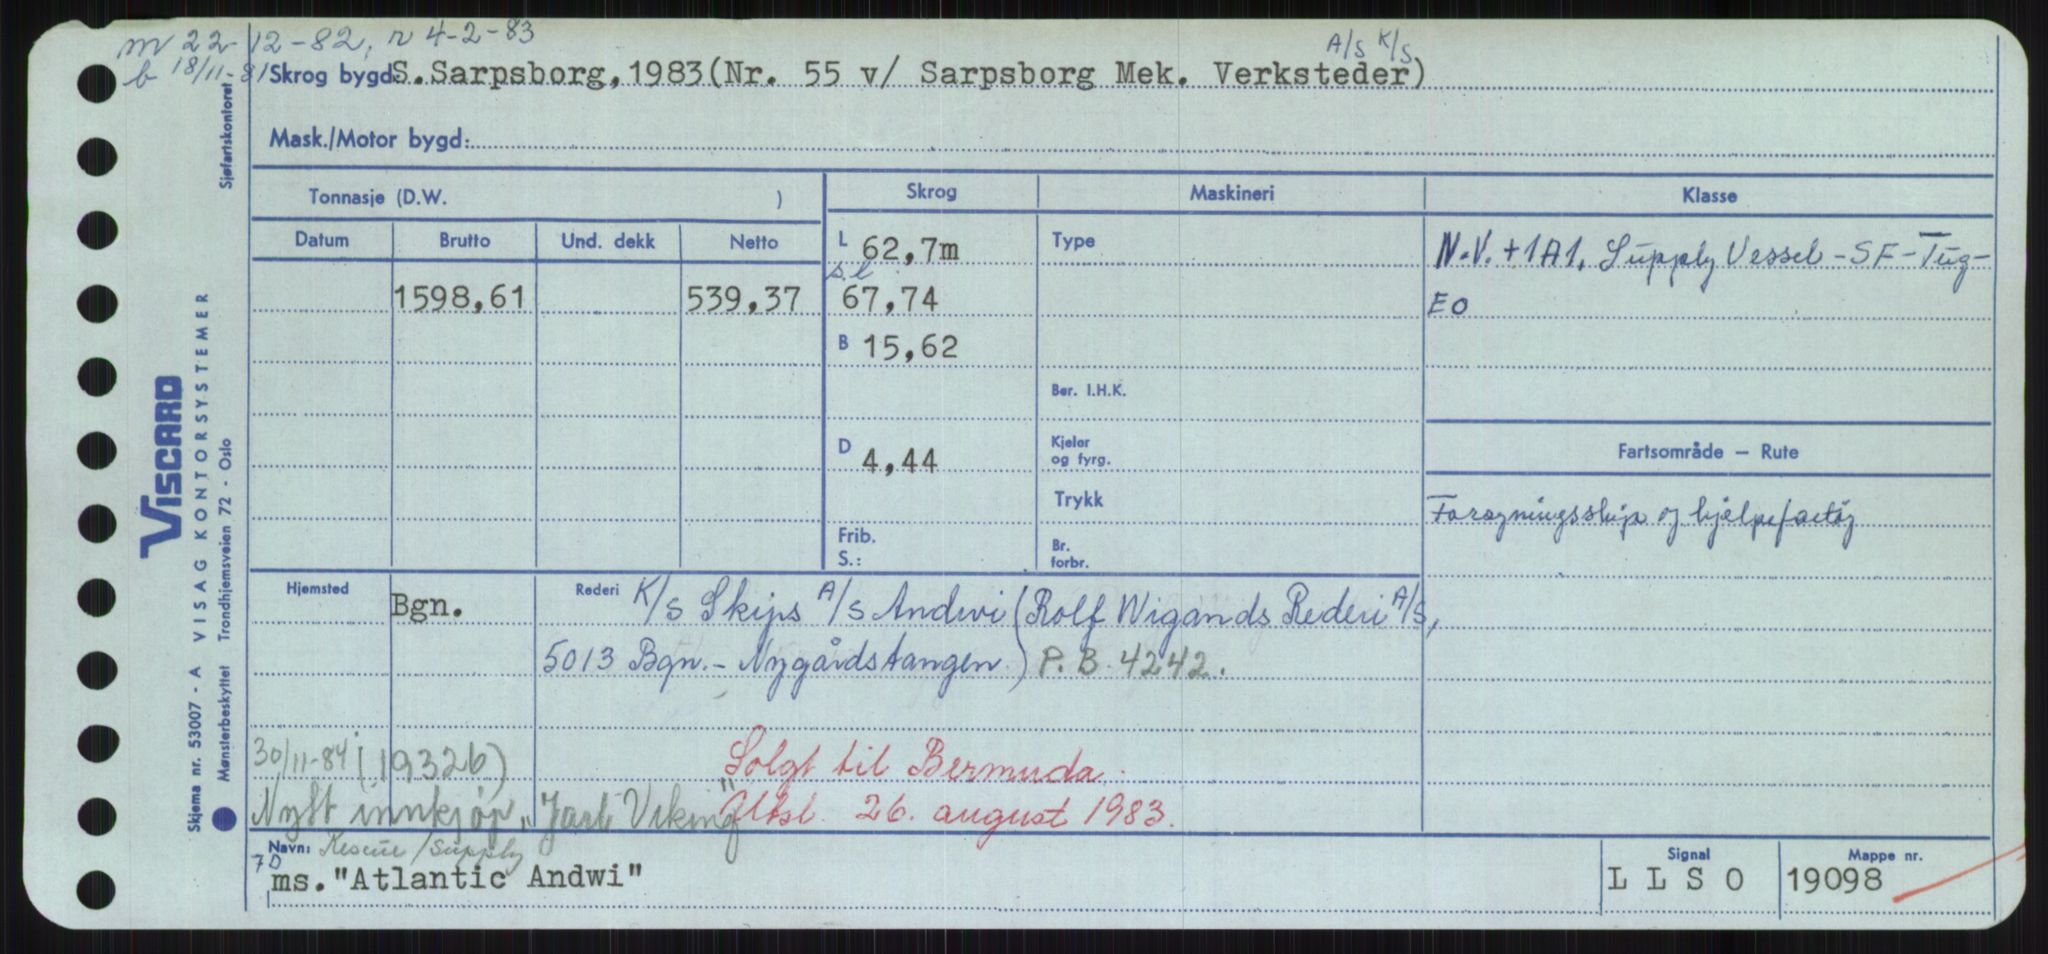 m 22-12-82, r 4-2-83
b 18/11-81
A/S K/S
Skrog bygd: S. Sarpsborg, 1983 (Nr. 55 v/ Sarpsborg Mek. Verksteder)
Mask./Motor bygd:
Tonnasje (D.W. ) Skrog Maskineri Klasse
Datum Brutto Und. dekk Netto L 62,7m Type N.V. +1A1, Supply Vessel - SF - Tug -
1598,61 539,37 s.l 67,74 EO
B 15,62
Bør. I.H.K.
Fartsområde — Rute
D 4,44 Kjeler og fyrg.
Trykk
Forsyningsskip og hjelpefartøy
Frib. S.: Br. forbr.
Hjemsted Bgn. Rederi K/S Skips A/S Andwi (Rolf Wigands Rederi A/S,
5013 Bgn. - Nygårdstangen) P.B. 4242.
30/11-84 (19326) Solgt til Bermuda.
Nytt innkjøp, "Jarl Viking" Utsl. 26. august 1983.
Navn: Rescue/Supply
7D
ms. "Atlantic Andwi"
Signal L L S O
Mappe nr. 19098
Sjøfartskontoret
VISCARD
Skjema nr. 53007 - A VISAG KONTORSYSTEMER
Mønsterbeskyttet Trondhjemsveien 72 - Oslo